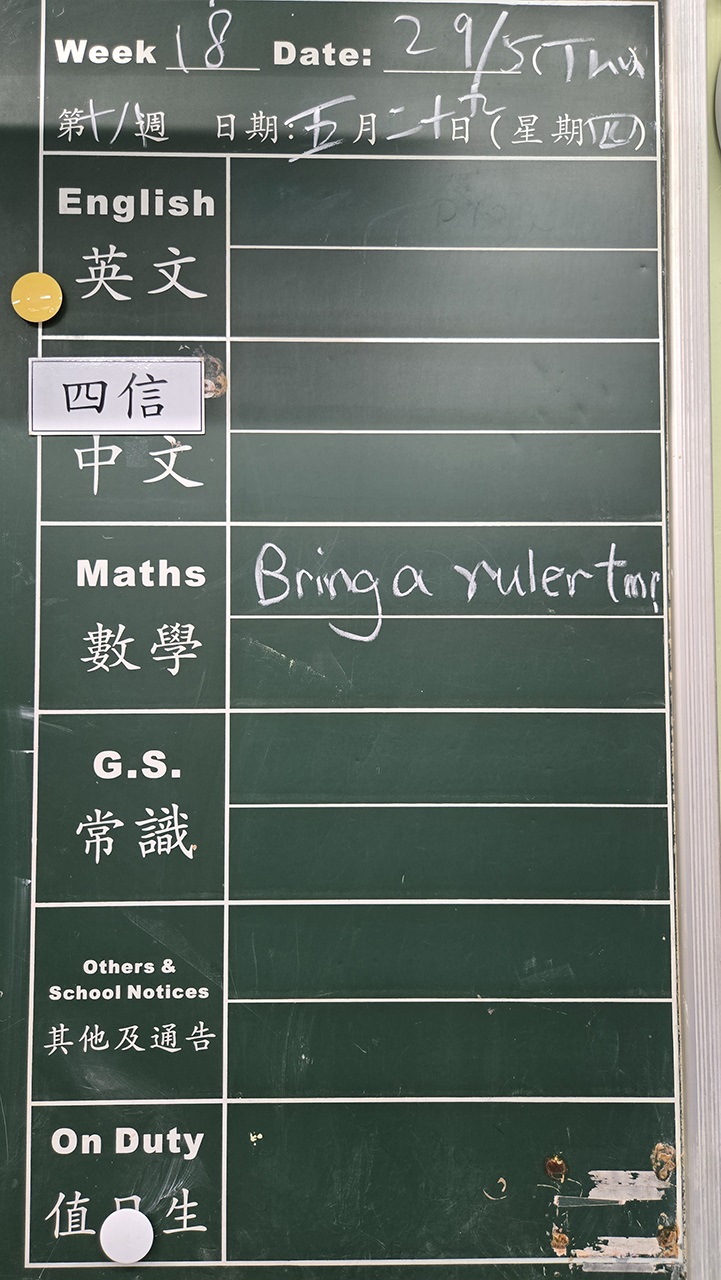 Week 18 Date: 29/5 (Thu)
第十八週 日期:五月二十九日(星期四)
English
英文
四信
中文
Maths Bring a ruler tmr
數學
G.S.
常識
Others &
School Notices
其他及通告
On Duty
值日生